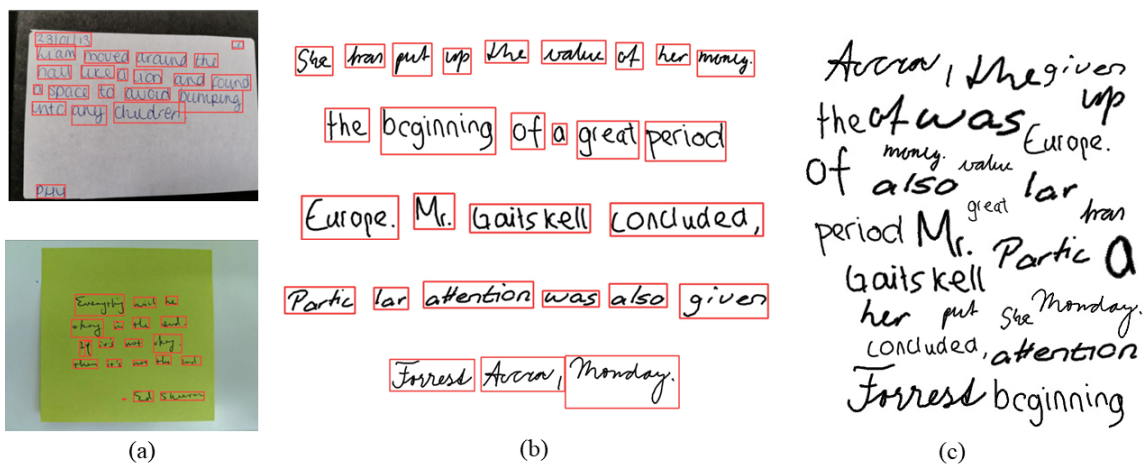 23/01/13
Liam moved around the
hall like a lion and found
a space to avoid bumping
into any children
Everything will be
okay in the end.
If it's not okay.
then it's not the end
- Ed Sheeran
(a)
She has put up the value of her money.
the beginning of a great period
Europe. Mr. Gaitskell concluded,
Partic lar attention was also given
Forrest Accra, Monday.
(b)
Accra, the given
up
the of was Europe.
of money. value
also lar
great has
period Mr. Partic a
Gaitskell
her put She Monday.
concluded, attention
Forrest beginning
(c)